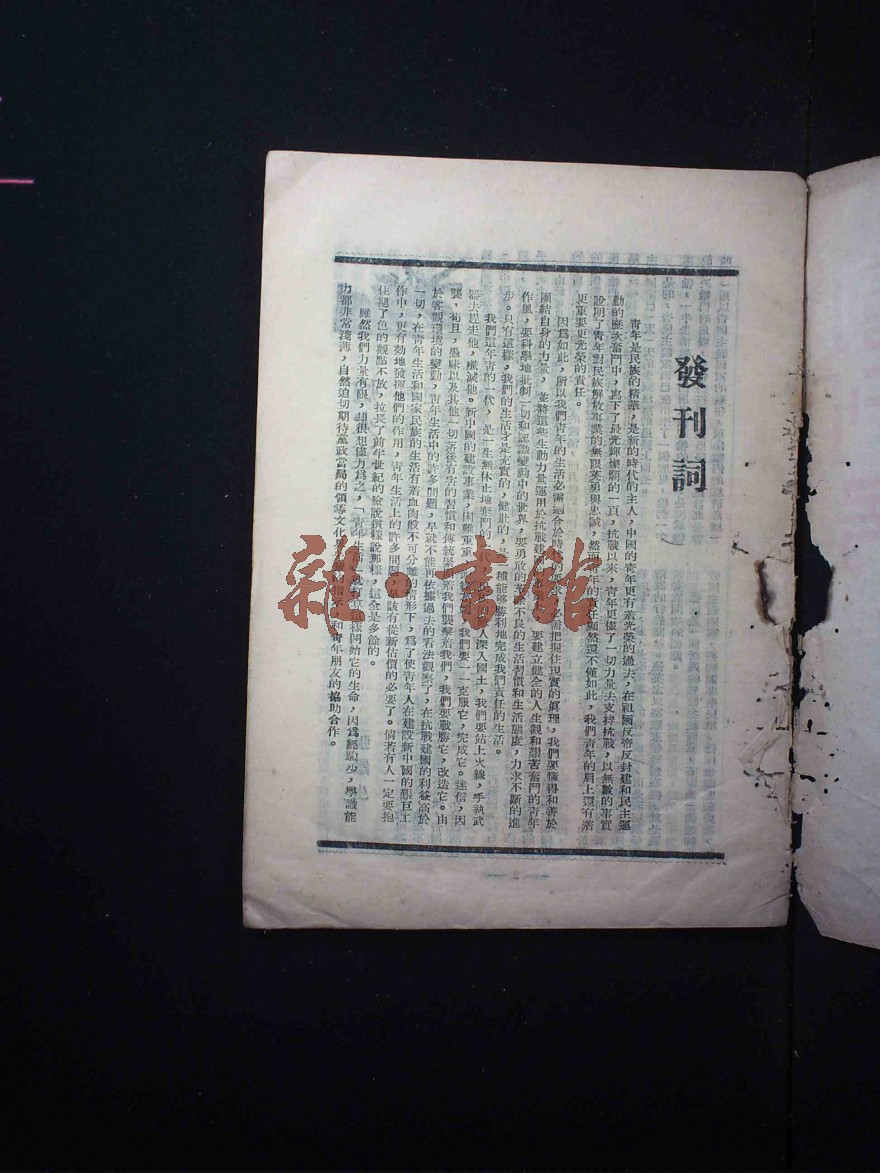 發刊詞
青年是民族的精華，是新的時代的主人，中國的青年更有着光榮的過去，在祖國反帝反封建和民主運
動的歷次奮鬥中，寫下了最光輝燦爛的一頁，抗戰以來，青年更儘了一切力量去支持抗戰，以無數的事實
證明了青年對民族解放事業的無限英勇與忠誠，然而青年的責任顯然還不僅如此，我們青年的肩上還有着
更重要更光榮的責任。
因爲如此，所以我們青年的生活必需適合於時代的要
把握住現實的眞理，我們要懂得和善於
團結自身的力量，並將這些生動力量運用於抗戰建
要建立健全的人生觀和艱苦奮鬥的青年
作風，要科學地批制一切和認識變動中的世界，要勇敢的
不良的生活習慣和生活態度，力求不斷的進
步。只有這樣，我們的生活才是充實的，健壯的，是
種能够勝利地完成我們責任的生活。
我們這年青的一代，是一生無休止地奮鬥的一代，
人深入國土，我們要站上火線，手執武
器去趕走他，殲滅他。新中國的建設事業，困難重重
我們要一一克服它，完成它。迷信，因
襲，苟且，愚昧以及其他一切落後有害的習慣和傳統
着我們襲擊着我們，我們要戰勝它，改造它。由
於客觀環境的變動，青年生活中的許多問題，早就不能再依據過去的看法觀察了，在抗戰建國的利益高於
一切，在青年生活和國家民族的生活有着血肉般不可分離的情形下，爲了使青年人在建設新中國的艱巨工
作中，更有効地發揮他們的作用，青年生活上的許多問題，早該有從新估價的必要了。倘若有人一定要抱
住褪了色的觀點不放，拉長了前半世紀的臉說這樣說那樣，這全是多餘的。
雖然我們力量有限，却很想儘力爲之，「青年生活」
這樣開始它的生命，因爲經驗少，學識能
力都非常淺薄，自然迫切期待黨政當局的領導文化
的指示，和青年朋友的協助合作。
雜·書館